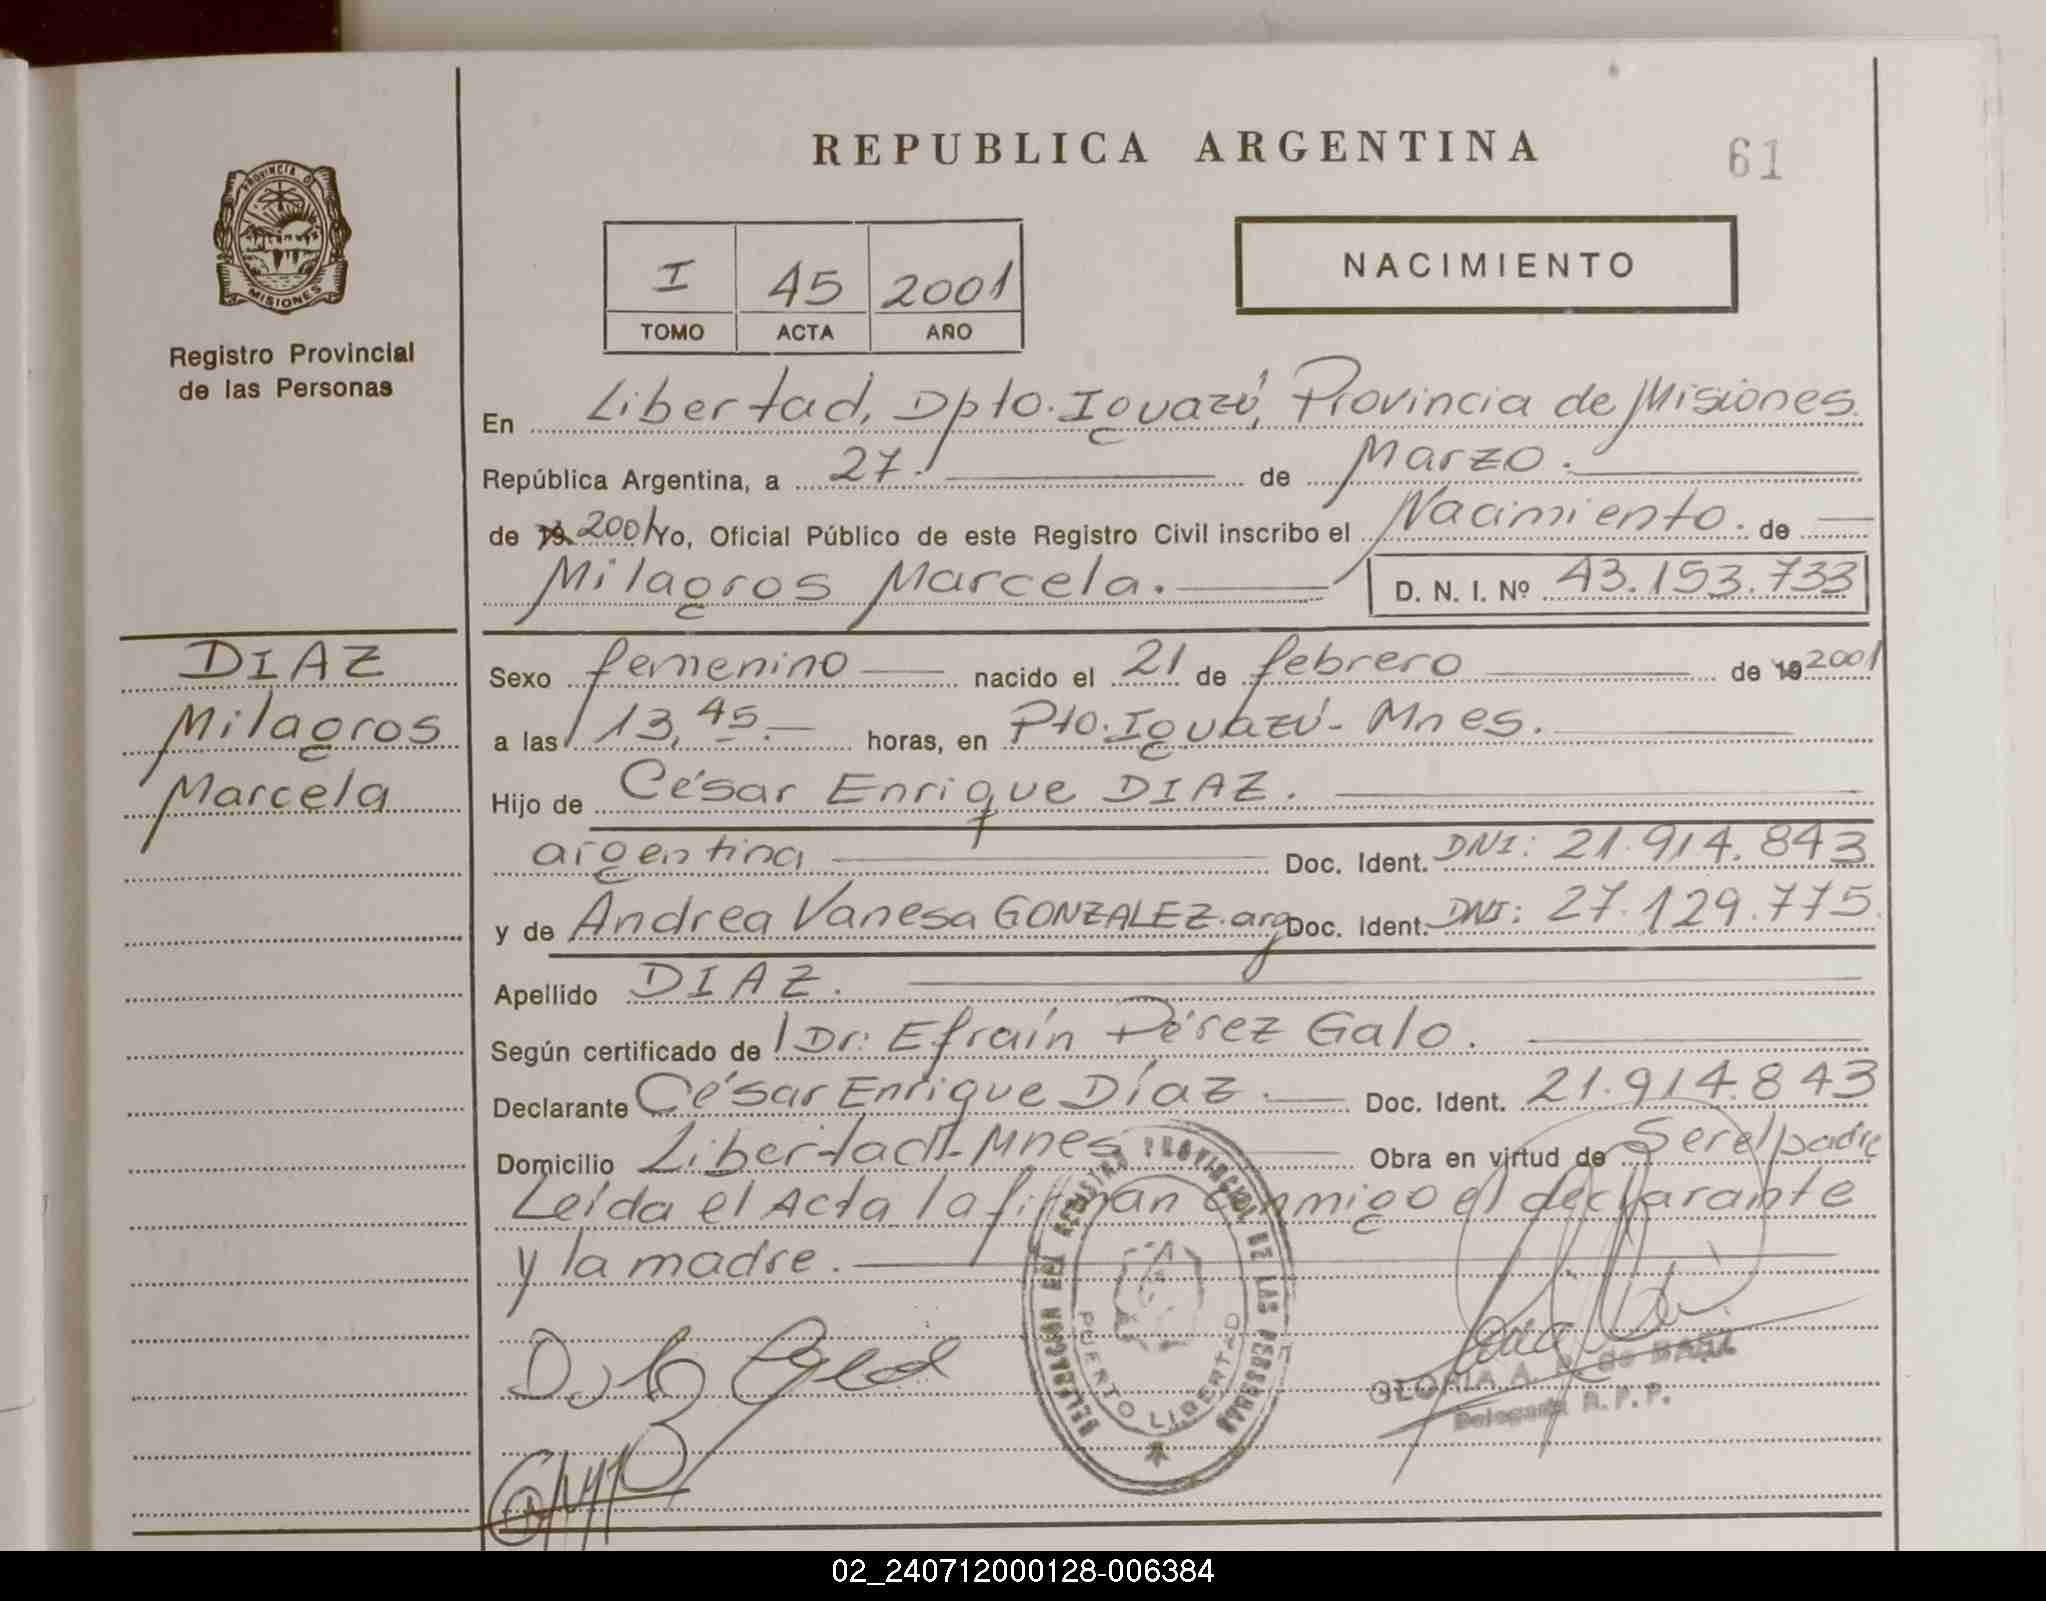 REPUBLICA ARGENTINA
61
PROVINCIA DE
MISIONES
Registro Provincial
de las Personas
I 45 2001
TOMO ACTA AÑO
NACIMIENTO
En Libertad, Dpto. Iguazú, Provincia de Misiones.
República Argentina, a 27. de Marzo.
de 19 2001 Yo, Oficial Público de este Registro Civil inscribo el Nacimiento. de
Milagros Marcela. D. N. I. Nº 43.153.733
DIAZ
Milagros
Marcela
Sexo femenino nacido el 21 de febrero de 19 2001
a las 13,45.- horas, en Pto. Iguazú - Mnes.
Hijo de César Enrique DIAZ.
argentina Doc. Ident. DNI: 21.914.843
y de Andrea Vanesa GONZALEZ. arg Doc. Ident. DNI: 27.129.775.
Apellido DIAZ.
Según certificado de Dr: Efraín Pérez Galo.
Declarante César Enrique Díaz. Doc. Ident. 21.914.843
Domicilio Libertad - Mnes Obra en virtud de Ser el padre
Leída el Acta la firman conmigo el declarante
y la madre.
DELEGACION DEL REGISTRO PROVINCIAL DE LAS PERSONAS
PUERTO LIBERTAD
GLORIA A.
Delegada R.P.P.
02_240712000128-006384